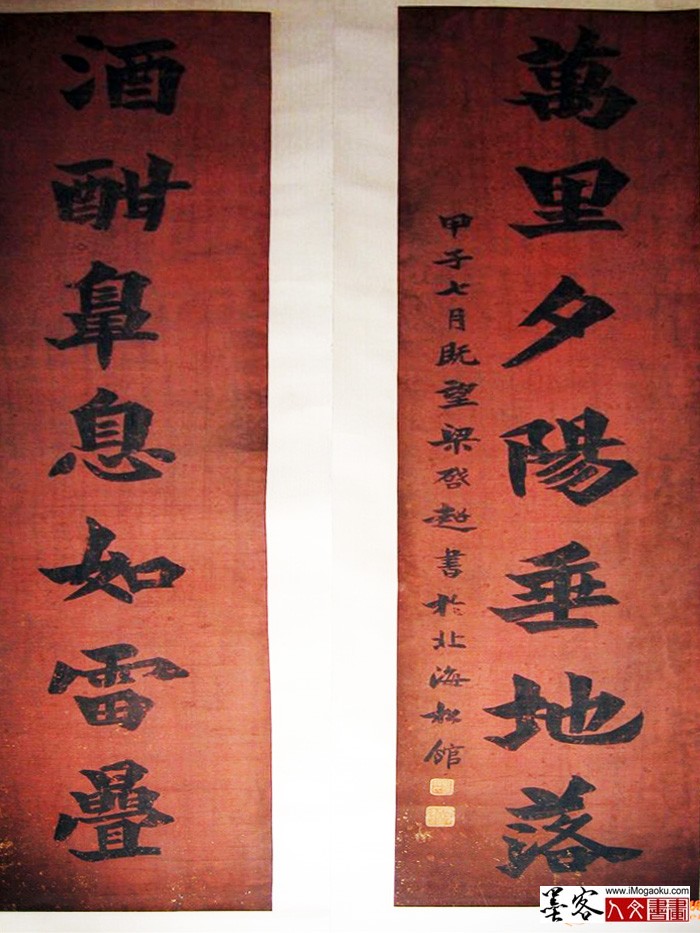 萬里夕陽垂地落
甲子七月既望梁啓超書於北海松館
酒酣鼻息如雷疊
墨客
www.iMogaoku.com
人文書畫